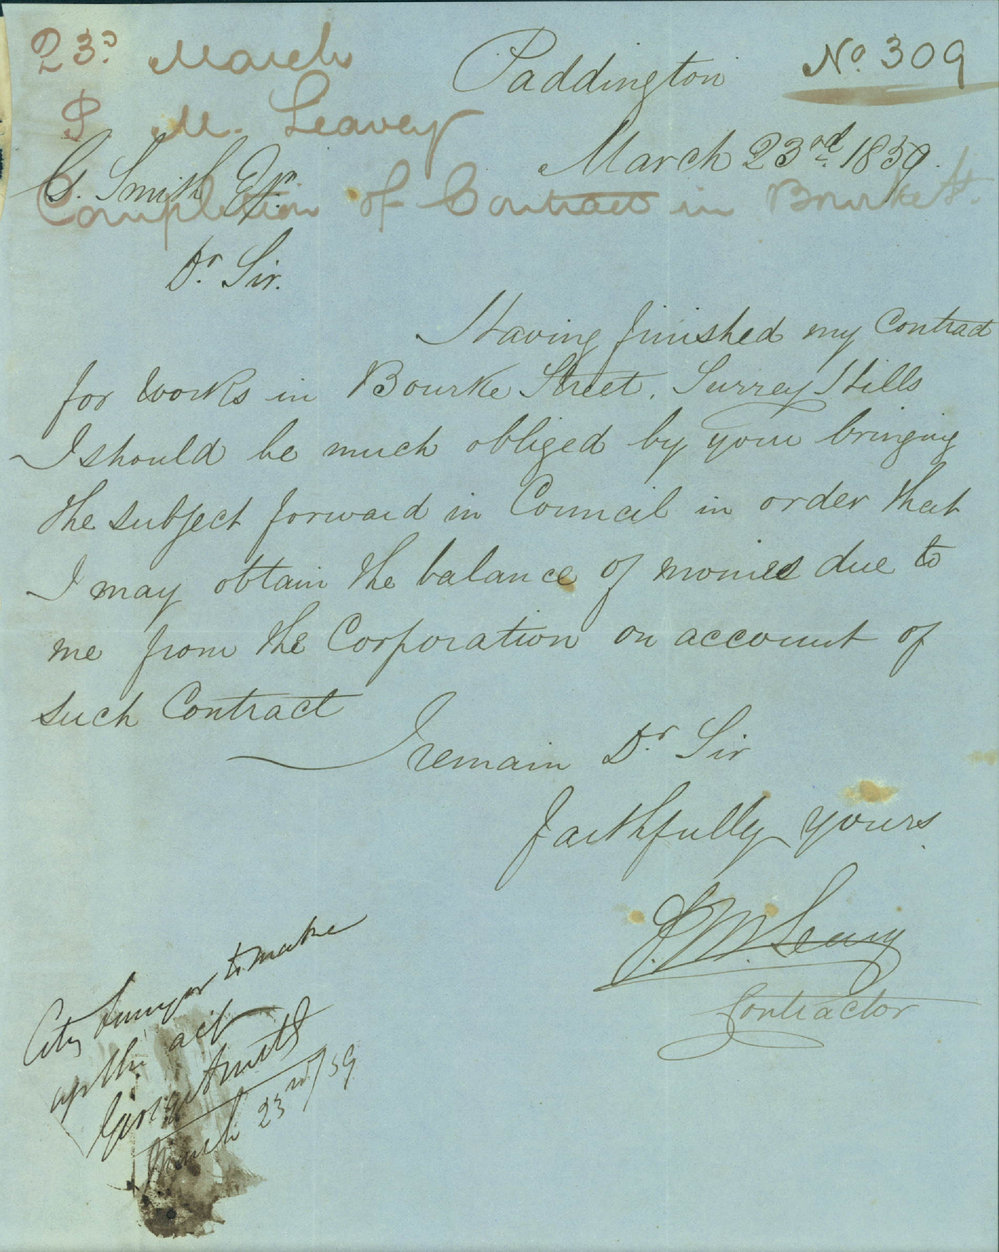 23d March
P M. Leavey
Completion of Contract in Bourke St.
No. 309
Paddington
March 23rd 1859.
G. Smith Esqr.
Dr. Sir.
Having finished my Contract
for works in Bourke Street, Surrey Hills
I should be much obliged by your bringing
the subject forward in Council in order that
I may obtain the balance of monies due to
me from the Corporation on account of
such Contract
I remain Dr. Sir
Faithfully yours
P. M. Leavey
Contractor
City Surveyor to make
up the act
George Smith
March 23rd/59